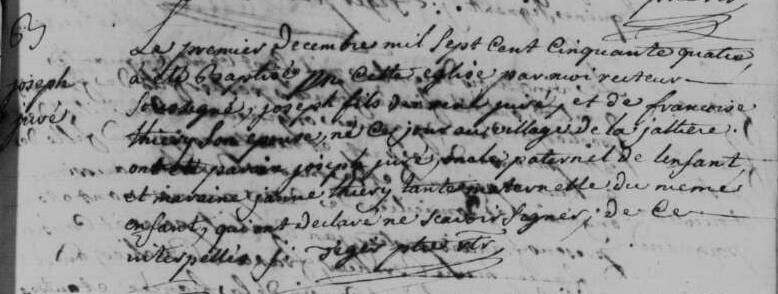 63
joseph
juré
Le premier decembre mil sept cent cinquante quatre
a été Baptisé en cette eglise par moi recteur
soussigné, joseph fils de juré, et de francoise
thiery son epouse, né ce jour au village de la jaltiere.
ont été parain joseph juré, oncle paternel de lenfant,
et maraine jeanne thiery tante maternelle du meme
enfant, qui ont declaré ne scavoir signer, de ce
interpellés